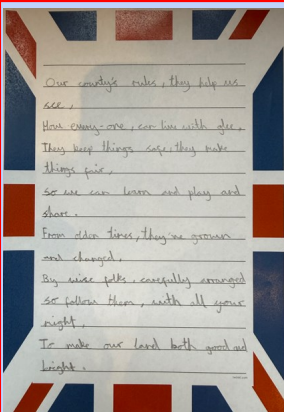 Our county's rules, they help us
see,
How every-one, can live with glee,
They keep things safe, they make
things fair,
so we can learn and play and
share.
From olden times, they've grown
and changed,
By wise folks, carefully arranged
so follow them, with all your
might,
To make our land both good and
bright.